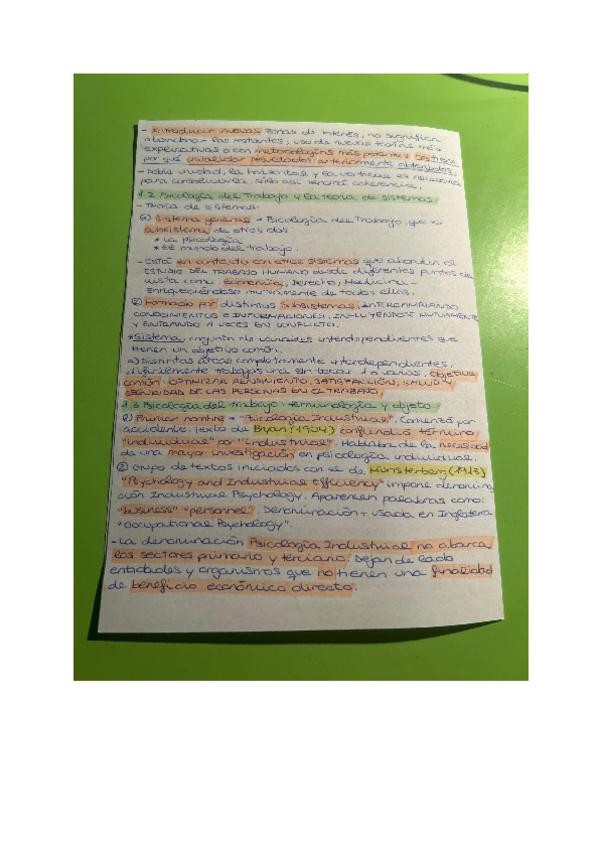 - Introducir nuevas zonas de interés, no significa
abandonar las restantes, uso de nuevas teorías más
explicativas o con metodologías más potentes
por qué invalidar resultados anteriormente obtenidos.
- Doble unidad, la horizontal y la vertical es necesaria
para considerarla, sólo así tendrá coherencia.
1.2 Psicología del Trabajo y la teoría de sistemas.
- Teoría de sistemas:
① Sistema general → Psicología del Trabajo, que es
subsistema de otros dos:
* La psicología
* El mundo del trabajo.
- Está en contacto con otros sistemas que abordan el
ESTUDIO DEL TRABAJO HUMANO desde diferentes puntos de
vista como Economía, Derecho, Medicina -
Enriqueciéndose mutuamente de todas ellas.
② Formado por distintos subsistemas, INTERCAMBIANDO
CONOCIMIENTOS E INFORMACIONES, INFLUYÉNDOSE MUTUAMENTE
Y ENTRANDO A VECES EN CONFLICTO.
* Sistema, conjunto de variables interdependientes que
tienen un objetivo común.
Distintas áreas completamente interdependientes,
difícilmente trabajas una sin tocar 1 o varias. Objetivo
común: OPTIMIZAR RENDIMIENTO, SATISFACCIÓN, SALUD Y
SEGURIDAD DE LAS PERSONAS EN EL TRABAJO
1.3 Psicología del trabajo: terminología y objeto.
① Primer nombre → "Psicología Industrial". Comenzó por
accidente. Texto de Bryan (1904) confundió término
"individual" por "industrial". Hablaba de la necesidad
de una mayor investigación en psicología individual.
② Grupo de textos iniciados con el de Münsterberg (1913)
"Psychology and Industrial efficiency" impone denomina
ción Industrial Psychology. Aparecen palabras como:
"business" "personnel". Denominación + usada en Inglaterra
→ Ocupational Psychology".
- La denominación Psicología Industrial no abarca
los sectores primario y terciario. Dejan de lado
entidades y organismos que no tienen una finalidad
de beneficio económico directo.